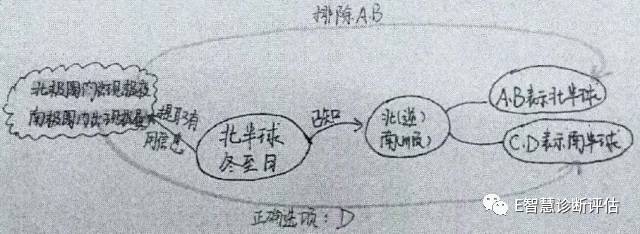 排除A.B
北极圈内出现极夜
南极圈内出现极昼
提取有
用信息
北半球
冬至日
已知
北(逆)
南(顺)
A.B表示北半球
C.D表示南半球
正确选项：D
E智慧诊断评估